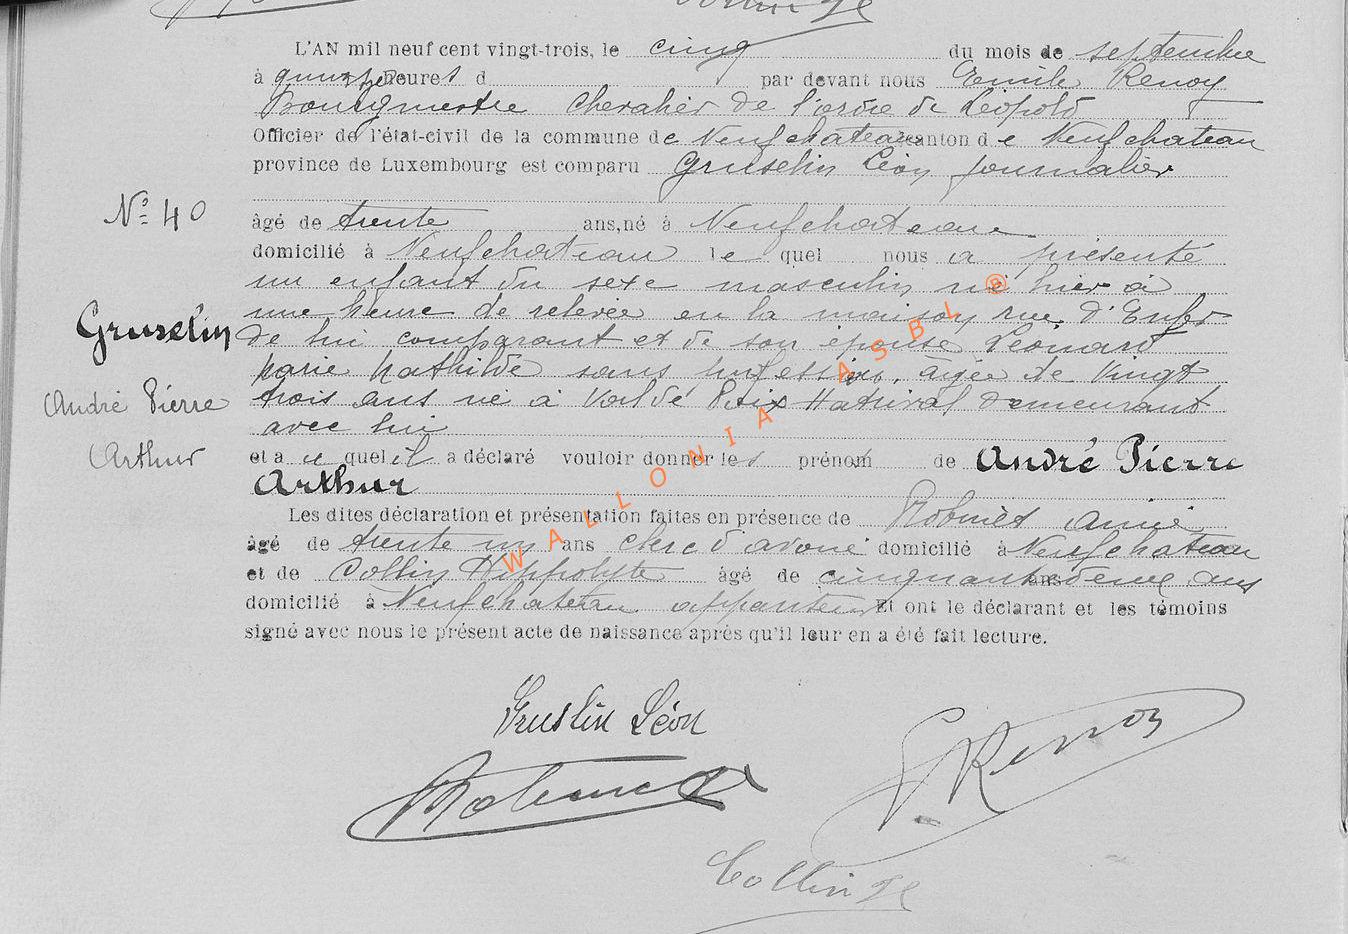 L'AN mil neuf cent vingt-trois, le cinq du mois de septembre
à quinze heures d par devant nous Emile Renoy
Bourgmestre Chevalier de l'ordre de Léopold
Officier de l'état-civil de la commune de Neufchateau canton de Neufchateau
province de Luxembourg est comparu Gruselin Léon journalier
N° 40
âgé de trente ans, né à Neufchateau
domicilié à Neufchateau le quel nous a présenté
un enfant du sexe masculin né hier à
une heure de relevée en la maison rue d'Enfer
Gruselin
de lui comparant et de son épouse Léonard
Marie Mathilde sans profession, agée de vingt
André Pierre
trois ans né à demeurant
Arthur
avec lui
et a u quel il a déclaré vouloir donner les prénom de André Pierre
Arthur
Les dites déclaration et présentation faites en présence de
âgé de trente un ans clerc d'avoué domicilié à Neufchateau
et de Collin Hippolyte âgé de cinquante deux ans
domicilié à Neufchateau Et ont le déclarant et les témoins
signé avec nous le présent acte de naissance après qu'il leur en a été fait lecture.
Gruslin Léon
E Renoy
Collin
WALLONIA ASBL ®